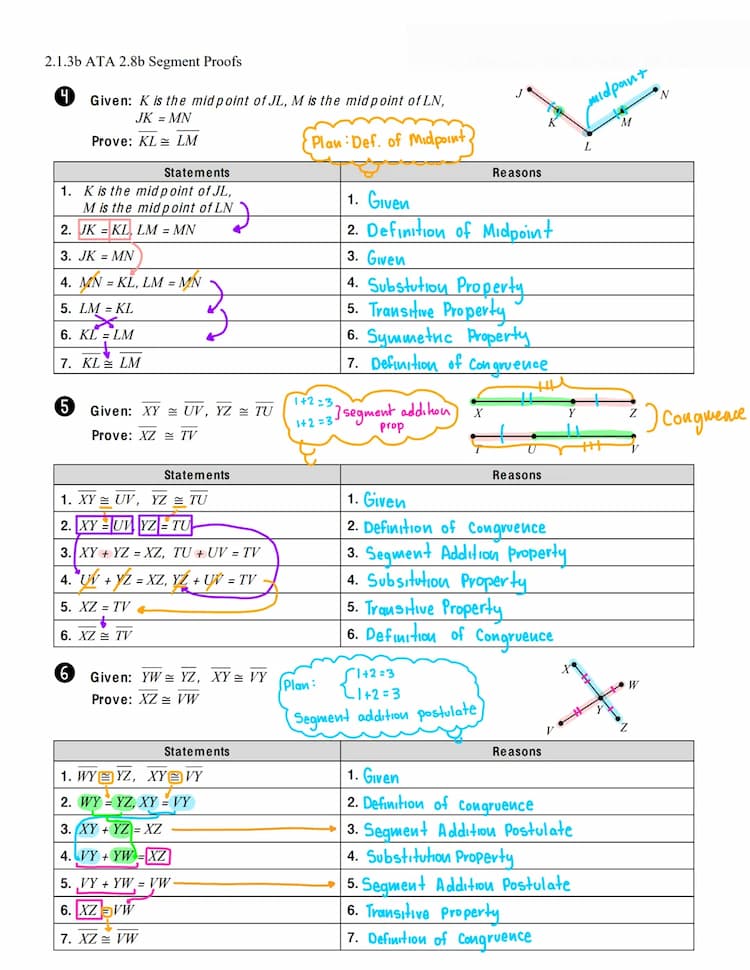 2.1.3b ATA 2.8b Segment Proofs
4 Given: K is the midpoint of JL, M is the midpoint of LN,
JK = MN
Prove: K̅L̅ ≅ L̅M̅
Plan: Def. of Midpoint
J K L M N
midpoint
Statements Reasons
1. K is the midpoint of JL,
M is the midpoint of LN 1. Given
2. JK = KL, LM = MN 2. Definition of Midpoint
3. JK = MN 3. Given
4. MN = KL, LM = MN 4. Substution Property
5. LM = KL 5. Transitive Property
6. KL = LM 6. Symmetric Property
7. K̅L̅ ≅ L̅M̅ 7. Definition of Congruence
5 Given: X̅Y̅ ≅ U̅V̅, Y̅Z̅ ≅ T̅U̅
Prove: X̅Z̅ ≅ T̅V̅
1+2=3
1+2=3
segment addition
prop
X Y Z
T U V
Congruence
Statements Reasons
1. X̅Y̅ ≅ U̅V̅, Y̅Z̅ ≅ T̅U̅ 1. Given
2. XY = UV, YZ = TU 2. Definition of Congruence
3. XY + YZ = XZ, TU + UV = TV 3. Segment Addition Property
4. UV + YZ = XZ, YZ + UV = TV 4. Subsitution Property
5. XZ = TV 5. Transitive Property
6. X̅Z̅ ≅ T̅V̅ 6. Definition of Congruence
6 Given: Y̅W̅ ≅ Y̅Z̅, X̅Y̅ ≅ V̅Y̅
Prove: X̅Z̅ ≅ V̅W̅
Plan: 1+2=3
1+2=3
Segment addition postulate
X W Y V Z
Statements Reasons
1. W̅Y̅ ≅ Y̅Z̅, X̅Y̅ ≅ V̅Y̅ 1. Given
2. WY = YZ, XY = VY 2. Definition of Congruence
3. XY + YZ = XZ 3. Segment Addition Postulate
4. VY + YW = XZ 4. Substitution Property
5. VY + YW = VW 5. Segment Addition Postulate
6. XZ = VW 6. Transitive Property
7. X̅Z̅ ≅ V̅W̅ 7. Definition of Congruence